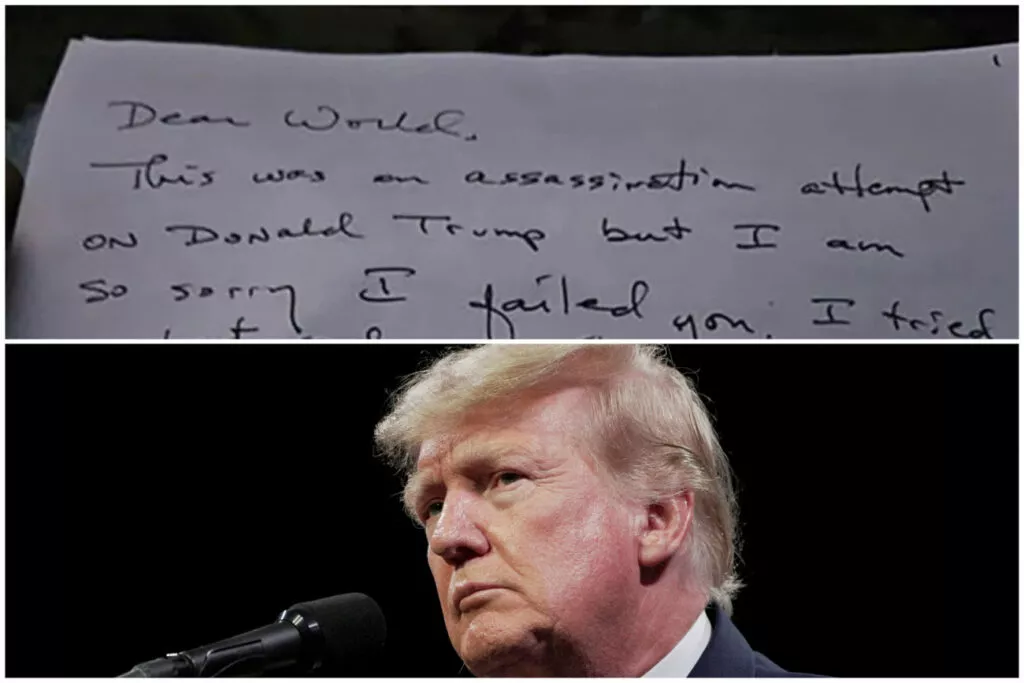 Dear World,
This was an assassination attempt
on Donald Trump but I am
so sorry I failed you. I tried